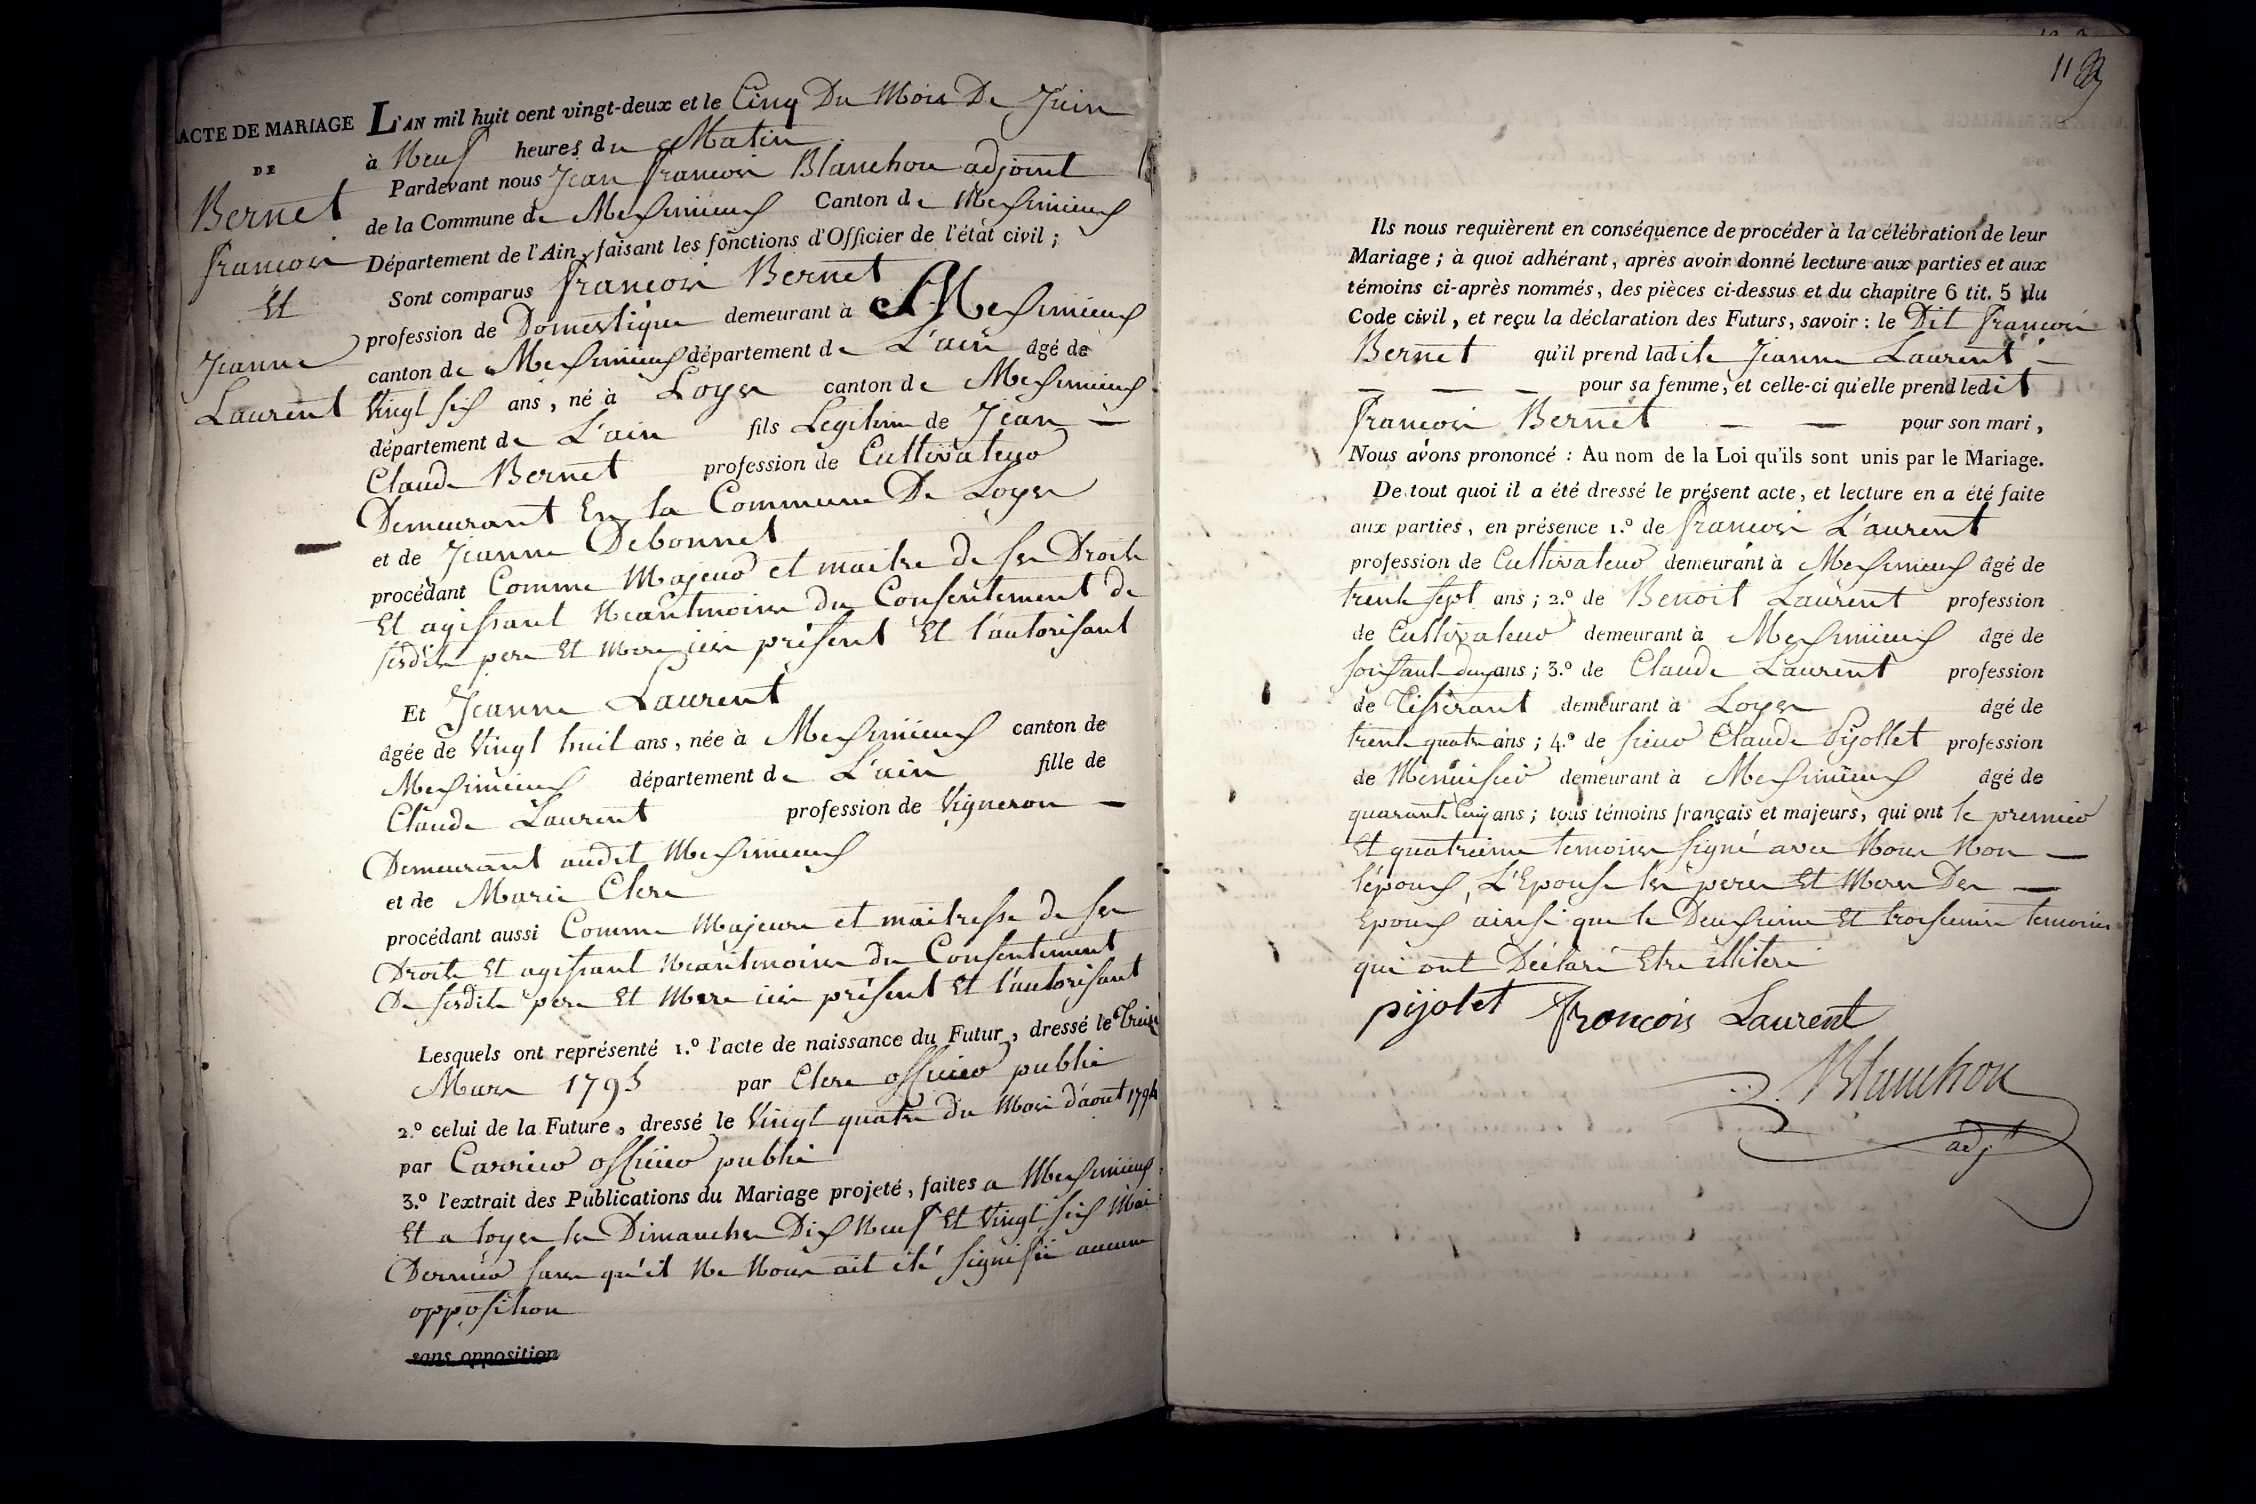 ACTE DE MARIAGE
DE
Bernet
francois
Et
Jeanne
Laurent
L'AN mil huit cent vingt-deux et le Cinq Du Mois De Juin
à Neuf heures du Matin
Pardevant nous Jean francois Blanchon adjoint
de la Commune de Meximieux Canton de Meximieux
Département de l'Ain, faisant les fonctions d'Officier de l'état civil ;
Sont comparus francois Bernet
profession de Domestique demeurant à Meximieux
canton de Meximieux département de L'ain âgé de
Vingt six ans, né à Loyes canton de Meximieux
département de L'ain fils Legitime de Jean —
Claude Bernet profession de Cultivateur
Demeurant En la Commune De Loyes
et de Jeanne Debonnet
procédant Comme Majeur et maitre de ses Droits
Et agissant Neantmoins du Consentement de
sesdits pere Et Mere icis présent Et l'autorisant
Et Jeanne Laurent
âgée de Vingt huit ans, née à Meximieux canton de
Meximieux département de L'ain fille de
Claude Laurent profession de Vigneron —
Demeurant audit Meximieux
et de Marie Clerc
procédant aussi Comme Majeure et maitresse de ses
Droits Et agissant Neantmoins du Consentement
De sesdits pere Et Mere icis présent Et l'autorisant
Lesquels ont représenté 1.º l'acte de naissance du Futur, dressé le Treize
Mars 1795 par Clerc officier public
2.º celui de la Future, dressé le Vingt quatre du Mois d'aout 1794
par Carrier officier public
3.º l'extrait des Publications du Mariage projeté, faites a Meximieux
Et a loyes les Dimanches Dix Neuf Et Vingt six Mai
Dernier sans qu'il Ne Nous ait été signifié aucune
opposition
sans opposition
Ils nous requièrent en conséquence de procéder à la célébration de leur
Mariage ; à quoi adhérant, après avoir donné lecture aux parties et aux
témoins ci-après nommés, des pièces ci-dessus et du chapitre 6 tit. 5 du
Code civil, et reçu la déclaration des Futurs, savoir : le Dit francois
Bernet qu'il prend ladite Jeanne Laurent —
— — — pour sa femme, et celle-ci qu'elle prend ledit
francois Bernet — — pour son mari,
Nous avons prononcé : Au nom de la Loi qu'ils sont unis par le Mariage.
De tout quoi il a été dressé le présent acte, et lecture en a été faite
aux parties, en présence 1.º de francois L'aurent
profession de Cultivateur demeurant à Meximieux âgé de
trente sept ans ; 2.º de Benoit Laurent profession
de Cultivateur demeurant à Meximieux âgé de
soixante deux ans ; 3.º de Claude Laurent profession
de Tisserant demeurant à Loyes âgé de
trente quatre ans ; 4.º de sieur Claude Pijollet profession
de Menuisier demeurant à Meximieux âgé de
quarante Cinq ans ; tous témoins français et majeurs, qui ont le premier
Et quatrieme temoins signé avec Nous Non —
l'époux, L'Epouse les peres Et Meres Des —
Epoux ainsi que le Deuxieme Et troisieme temoins
qui ont Déclaré Etre illiteré
pijolet francois Laurent
Blanchon
adjt